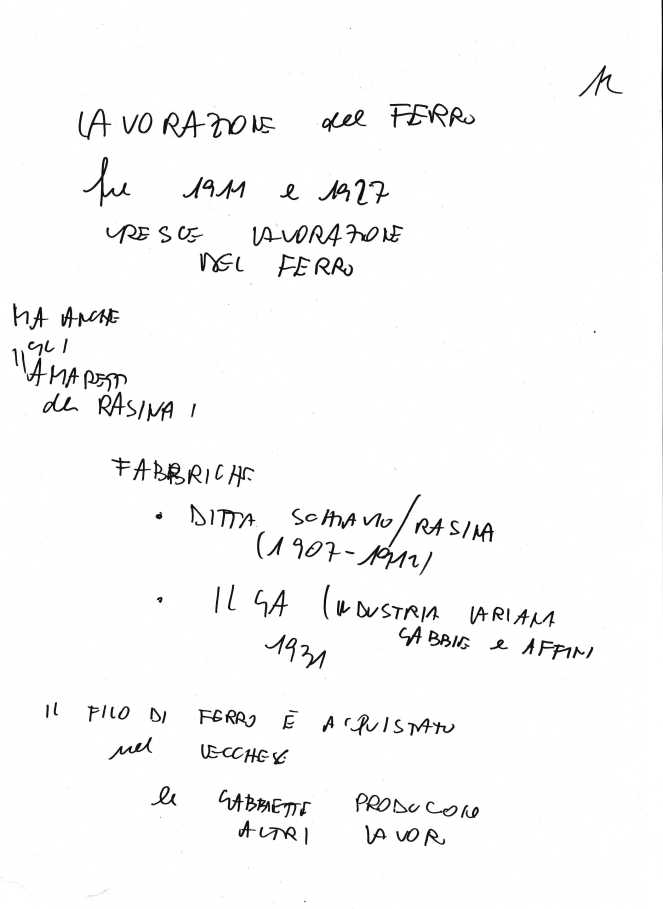 12
LAVORAZIONE del FERRO
fra 1911 e 1927
CRESCE LAVORAZIONE
DEL FERRO
MA ANCHE
GLI
"AMARETTI
di RASINA"
FABBRICHE
• DITTA SCHIAVIO/RASINA
(1907-1912)
• ILGA (INDUSTRIA LARIANA
GABBIE e AFFINI
1931
IL FILO DI FERRO È ACQUISTATO
nel LECCHESE
le GABBIETTE PRODUCONO
ALTRI LAVORI